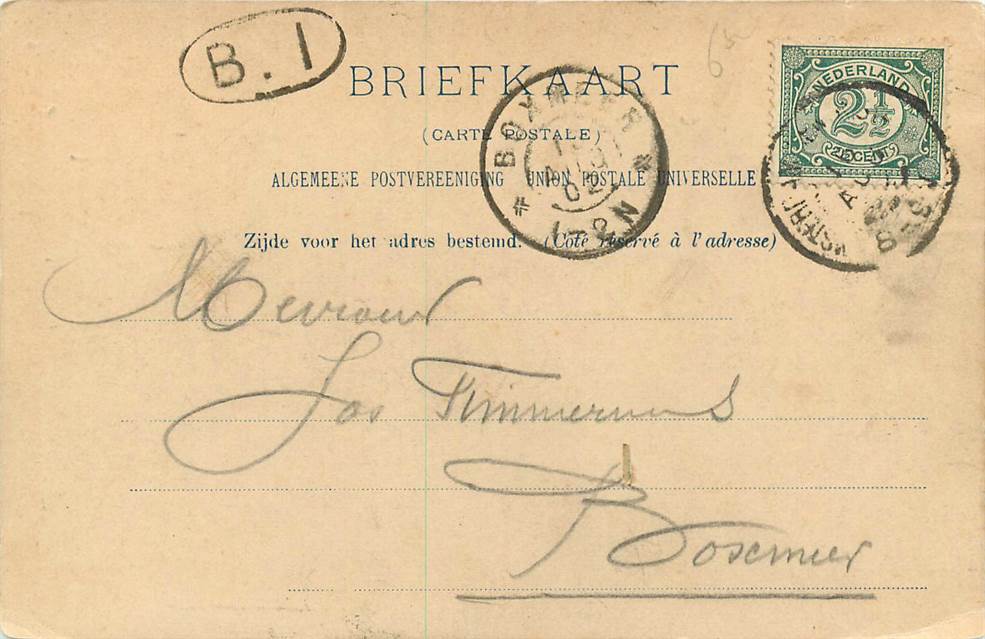 B. 1
BRIEFKAART
(CARTE POSTALE)
ALGEMEENE POSTVEREENIGING UNION POSTALE UNIVERSELLE
Zijde voor het adres bestemd. (Coté réservé à l'adresse)
NEDERLAND
2½
CENT
BOXMEER
AUG
02
Mevrouw
Jos Timmermans
Boxmeer